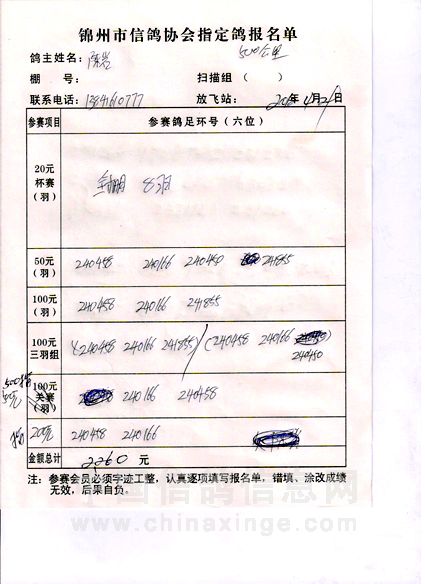 锦州市信鸽协会指定鸽报名单
鸽主姓名: 500公里
棚 号: 扫描组 ( )
联系电话: 13841610777 放飞站: 年4月 日
参赛项目 参赛鸽足环号(六位)
20元
杯赛
(羽)
全棚 8羽
50元
(羽)
240458 240166 240450 241855
100元
(羽)
240458 240166 241855
100元
三羽组
(240458 240166 241855)/(240458 240166
240450
100元
关赛
(羽)
240166 240458
200元 240458 240166
金额总计 2260 元
注:参赛会员必须字迹工整,认真逐项填写报名单,错填、涂改成绩
无效,后果自负。
中国信鸽信息网
www.chinaxinge.com